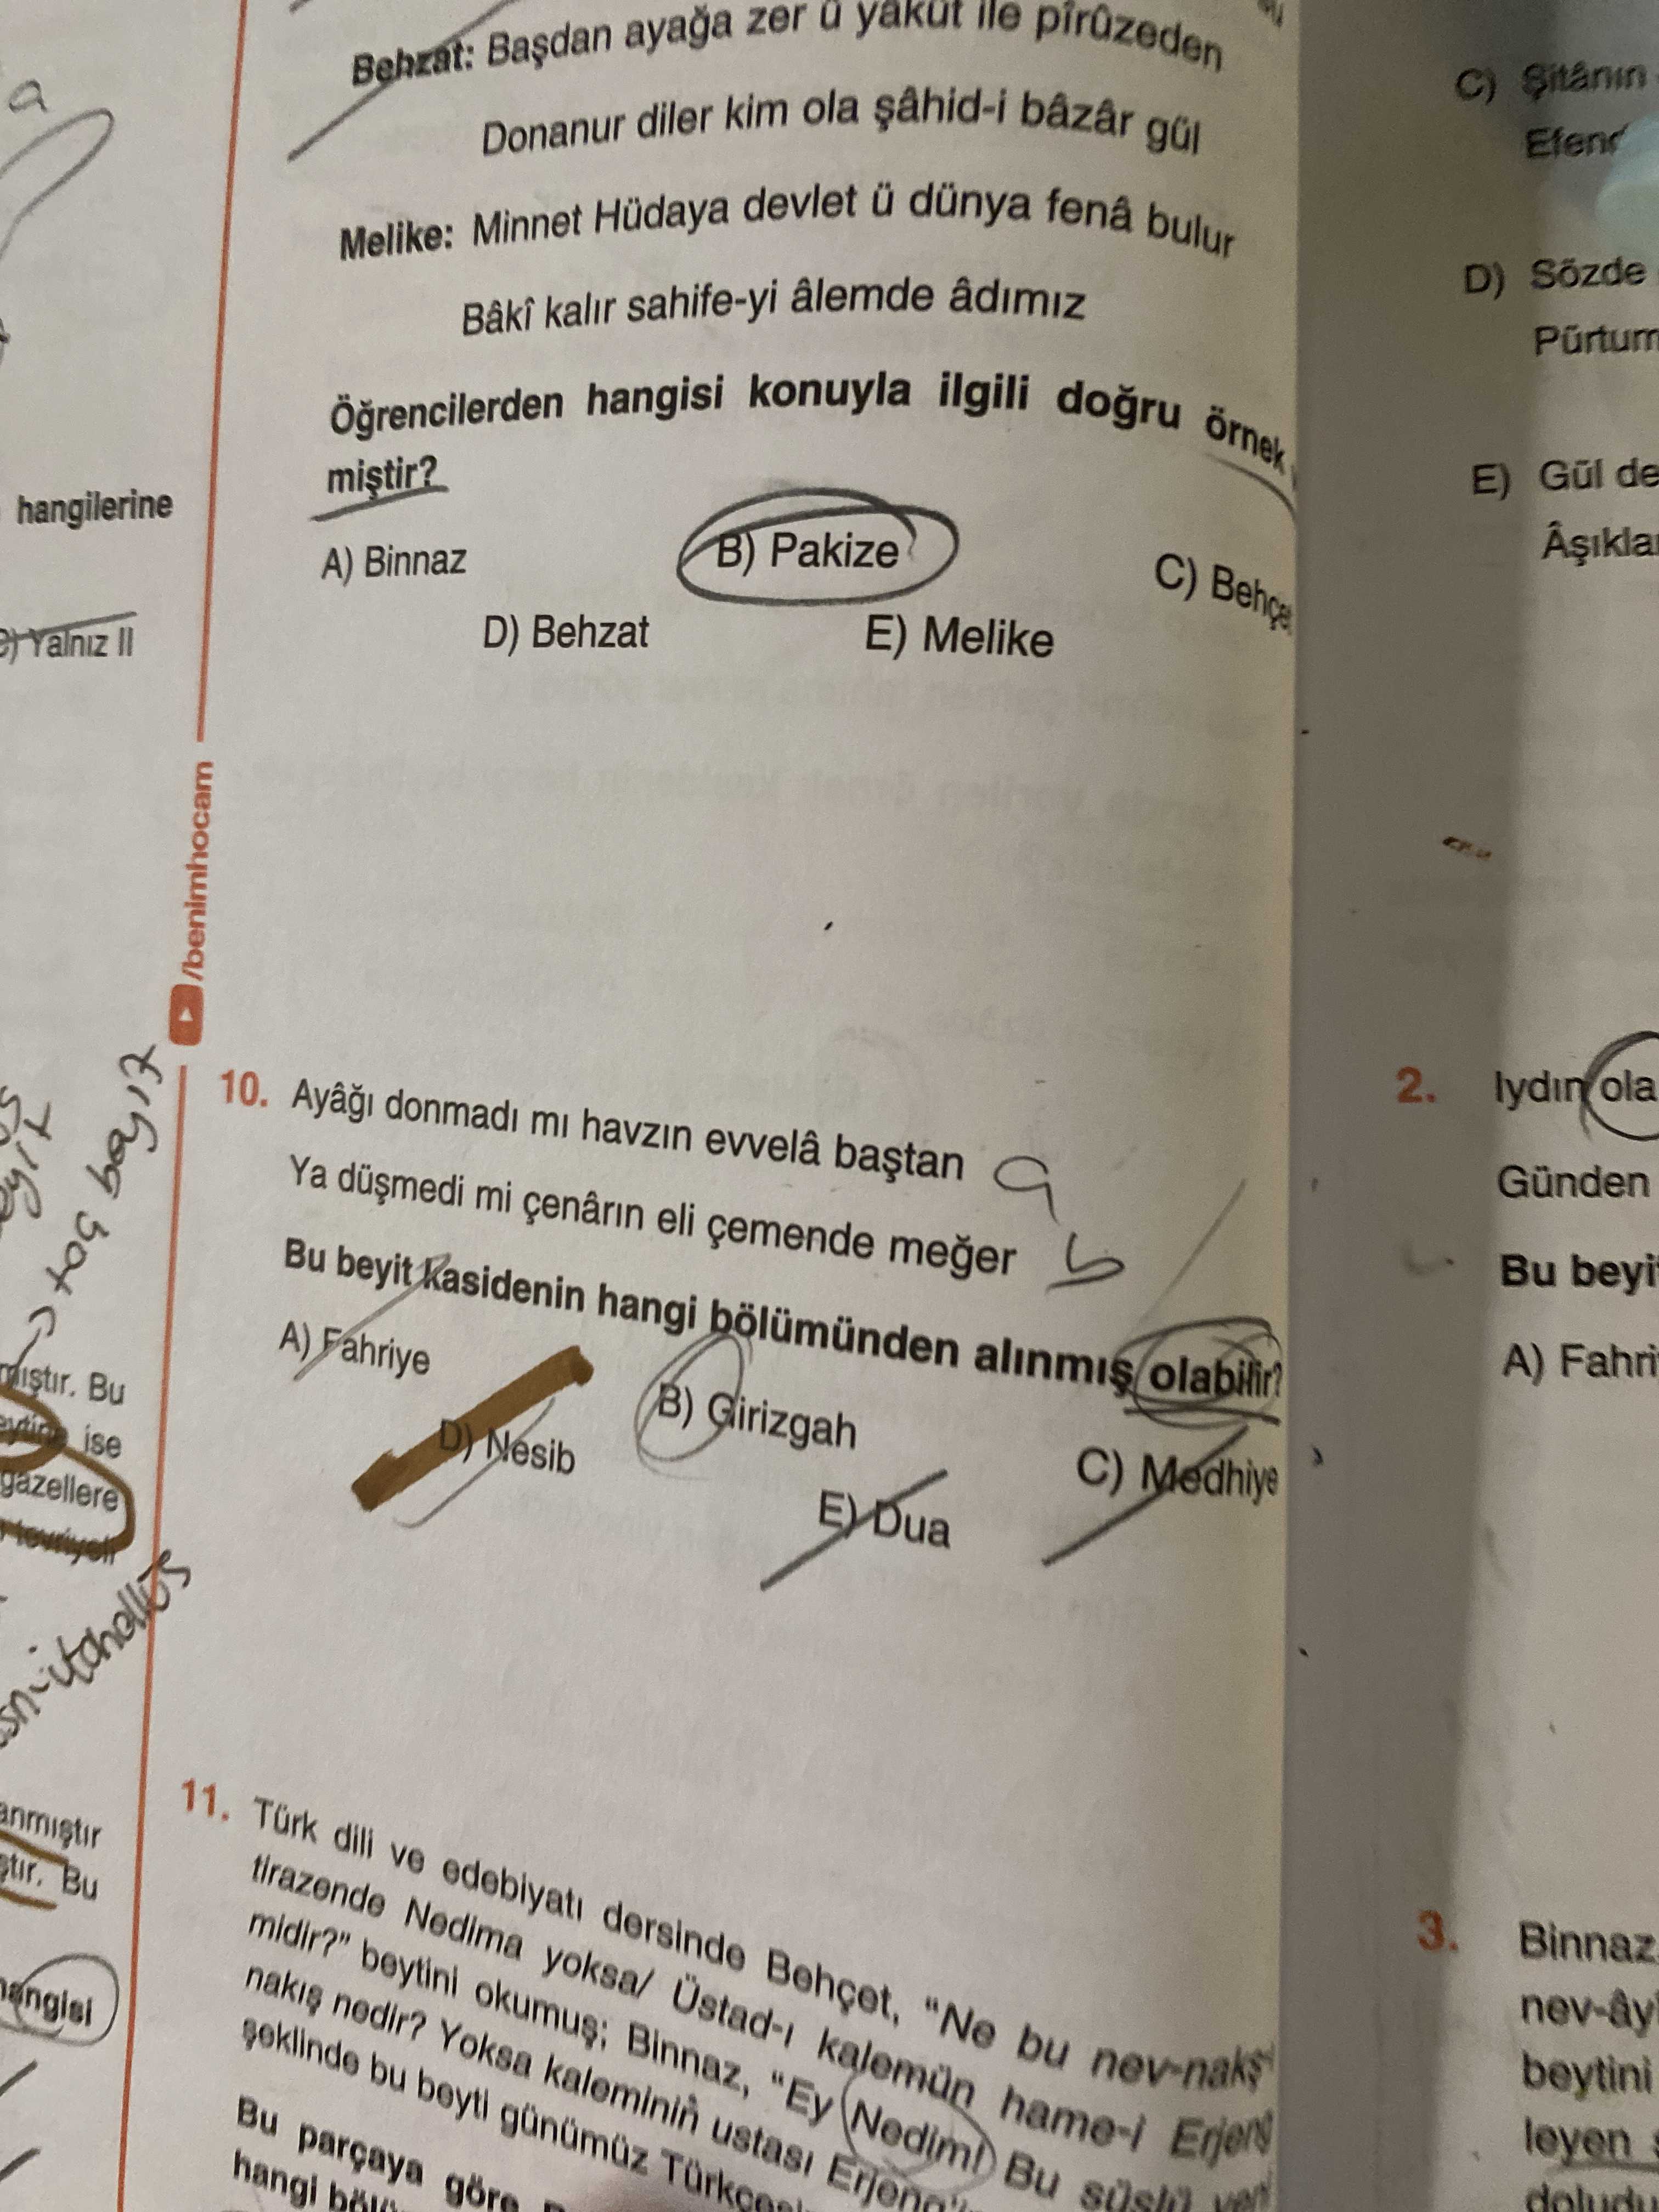 a
hangilerine
Yalnız II
Behzat: Başdan ayağa zer ü yâkût ile pîrûzeden
Donanur diler kim ola şâhid-i bâzâr gül
Melike: Minnet Hüdaya devlet ü dünya fenâ bulur
Bâkî kalır sahife-yi âlemde âdımız
Öğrencilerden hangisi konuyla ilgili doğru örnek
miştir?
A) Binnaz
B) Pakize
C) Behçet
D) Behzat
E) Melike
/benimhocam
taç beyit
mıştır. Bu
ise
gazellere
anmıştır
ştır. Bu
hangisi
10. Ayâğı donmadı mı havzın evvelâ baştan
a
Ya düşmedi mi çenârın eli çemende meğer
b
Bu beyit kasidenin hangi bölümünden alınmış olabilir?
A) Fahriye
B) Girizgah
C) Medhiye
D) Nesib
E) Dua
11. Türk dili ve edebiyatı dersinde Behçet, "Ne bu nev-nakş-ı
tirazende Nedima yoksa/ Üstad-ı kalemün hame-i Erjeng
midir?" beytini okumuş; Binnaz, "Ey Nedim! Bu süslü yeni
nakış nedir? Yoksa kaleminin ustası Erjeng
şeklinde bu beyti günümüz
Bu parçaya göre
hangi
C) Şitânın
D) Sözde
E) Gül de
2. Iydın ola
Günden
Bu beyit
A) Fahri
3. Binnaz
nev-âyî
beytini
leyen
doludu